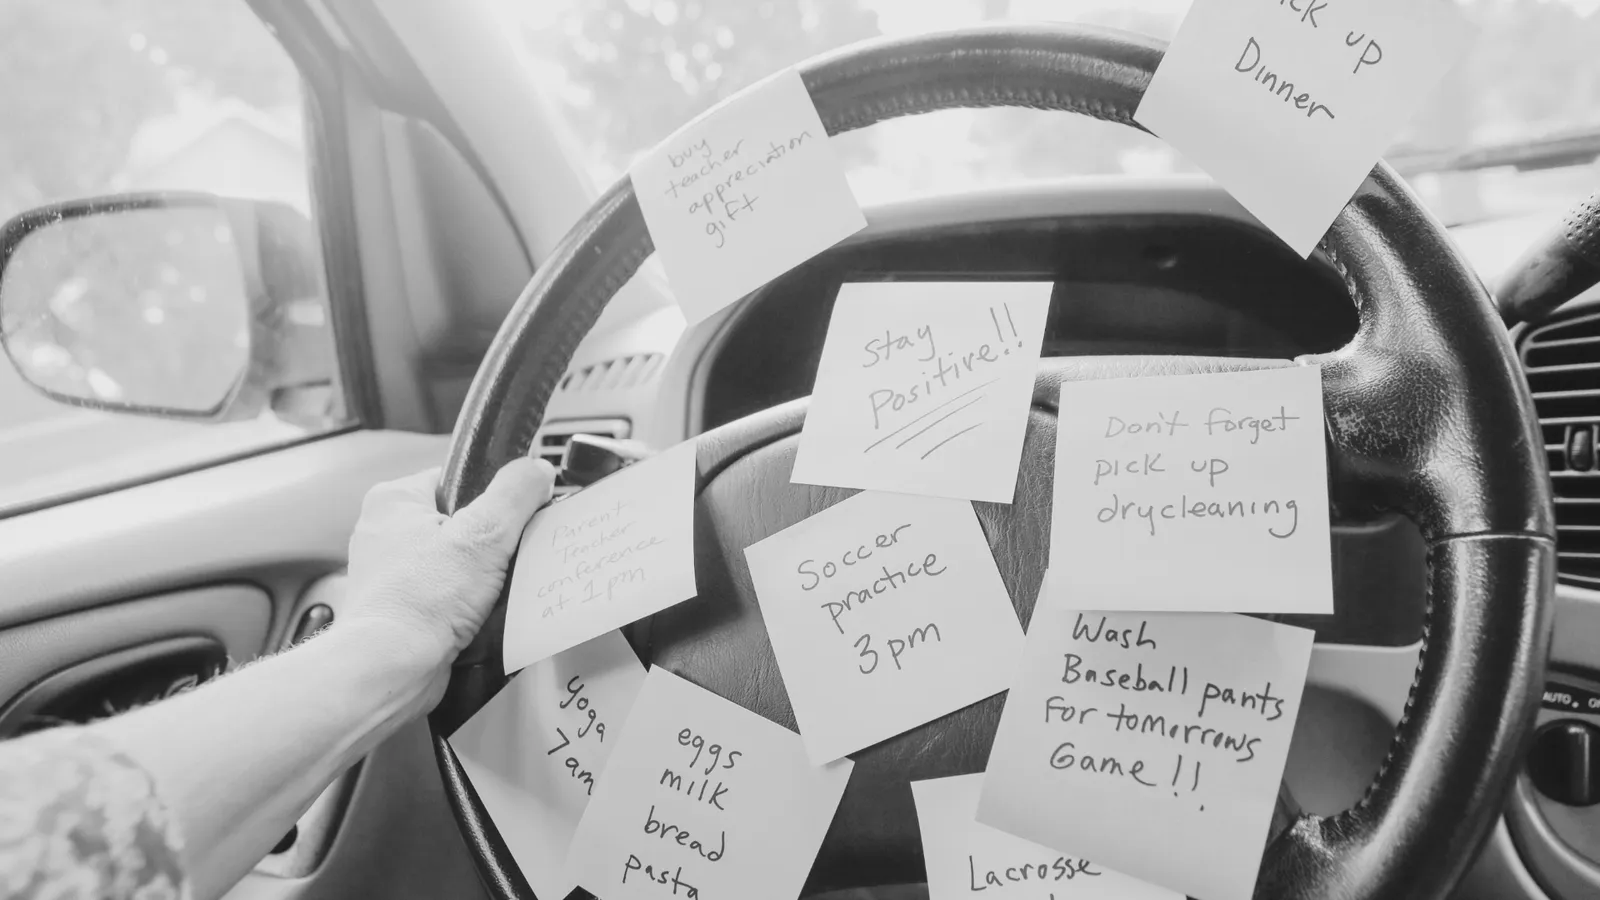 ick up
Dinner
buy
teacher
appreciation
gift
Stay
Positive!!
Don't forget
pick up
drycleaning
Parent
Teacher
conference
at 1 pm
Soccer
practice
3 pm
Wash
Baseball pants
for tomorrows
Game!!
yoga
7 am
eggs
milk
bread
pasta
Lacrosse
AUTO